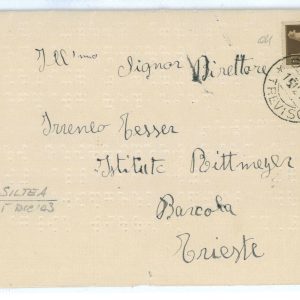 Ill'mo Signor Direttore
Irreneo Tesser
Istituto Rittmeyer
Barcola
Trieste
SILTEA
TREVISO